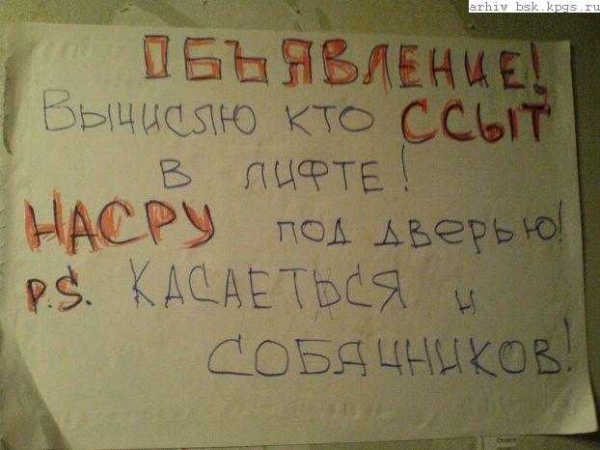 arhiv bsk.kpgs.ru
ОБЪЯВЛЕНИЕ!
ВЫЧИСЛЮ КТО ССЫТ
В ЛИФТЕ!
НАСРУ ПОД ДВЕРЬЮ!
P.S. КАСАЕТЬСЯ И
СОБАЧНИКОВ!